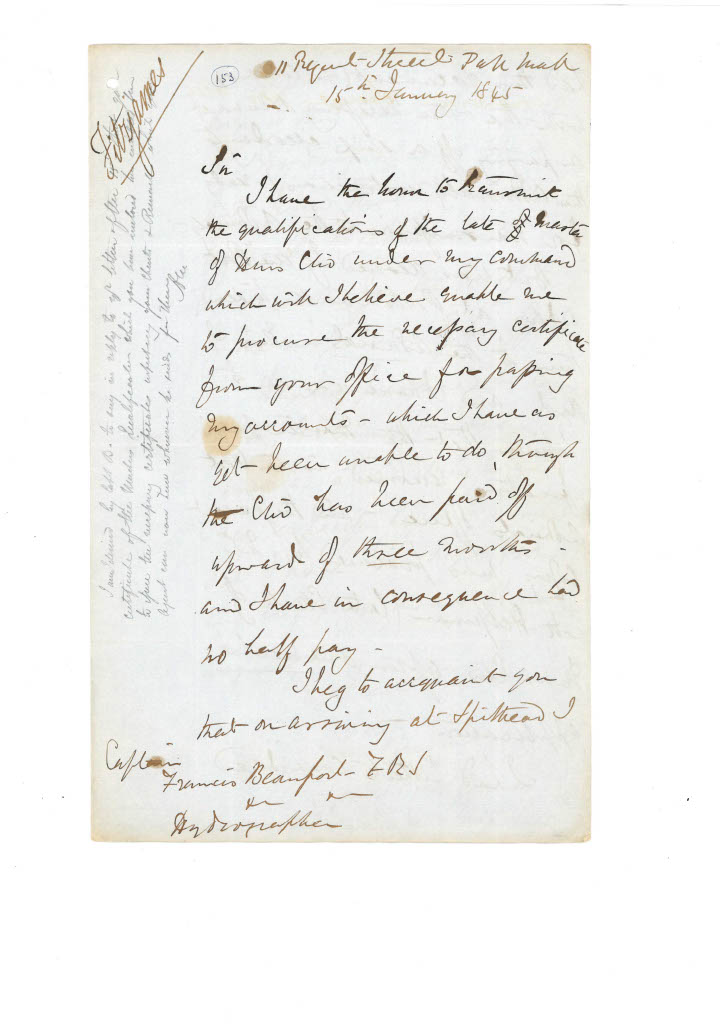 153
11 Regent Street Pall Mall
15th January 1845
Fitzjames
Sir
I have the honor to transmit
the qualifications of the late Master
of Hms Clio under my command
which will I believe enable me
to procure the necessary certificate
from your office for passing
my accounts - which I have as
yet been unable to do, though
the Clio has been paid off
upward of three months -
and I have in consequence had
no half pay -
I beg to acquaint you
that on arriving at Spithead I
Captain
Francis Beaufort - FRS
Hydrographer
I am desired by Capt B. to say in reply to yr letter of the
certificate of the Masters Qualification which you have
to the necessary certificates your Charts & Remark
agent can now whenever he sends for them